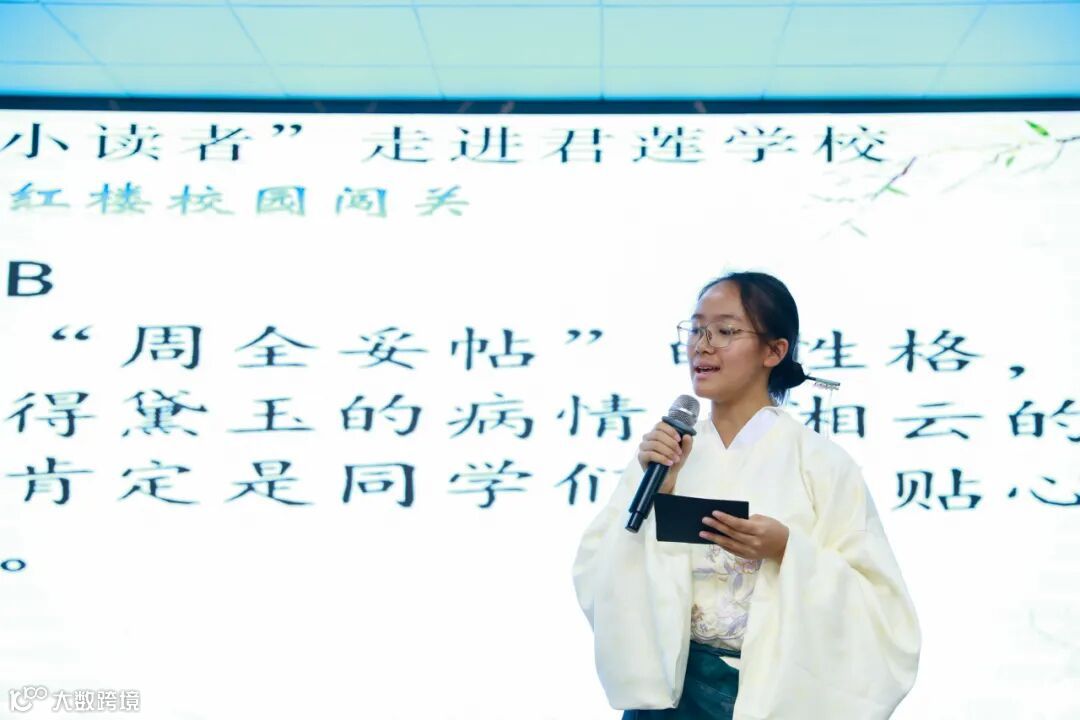 小读者”走进君莲学校
红楼校园闯关
B
“周全妥帖”的性格，
得黛玉的病情 相云的
肯定是同学们 贴心
。
大数跨境